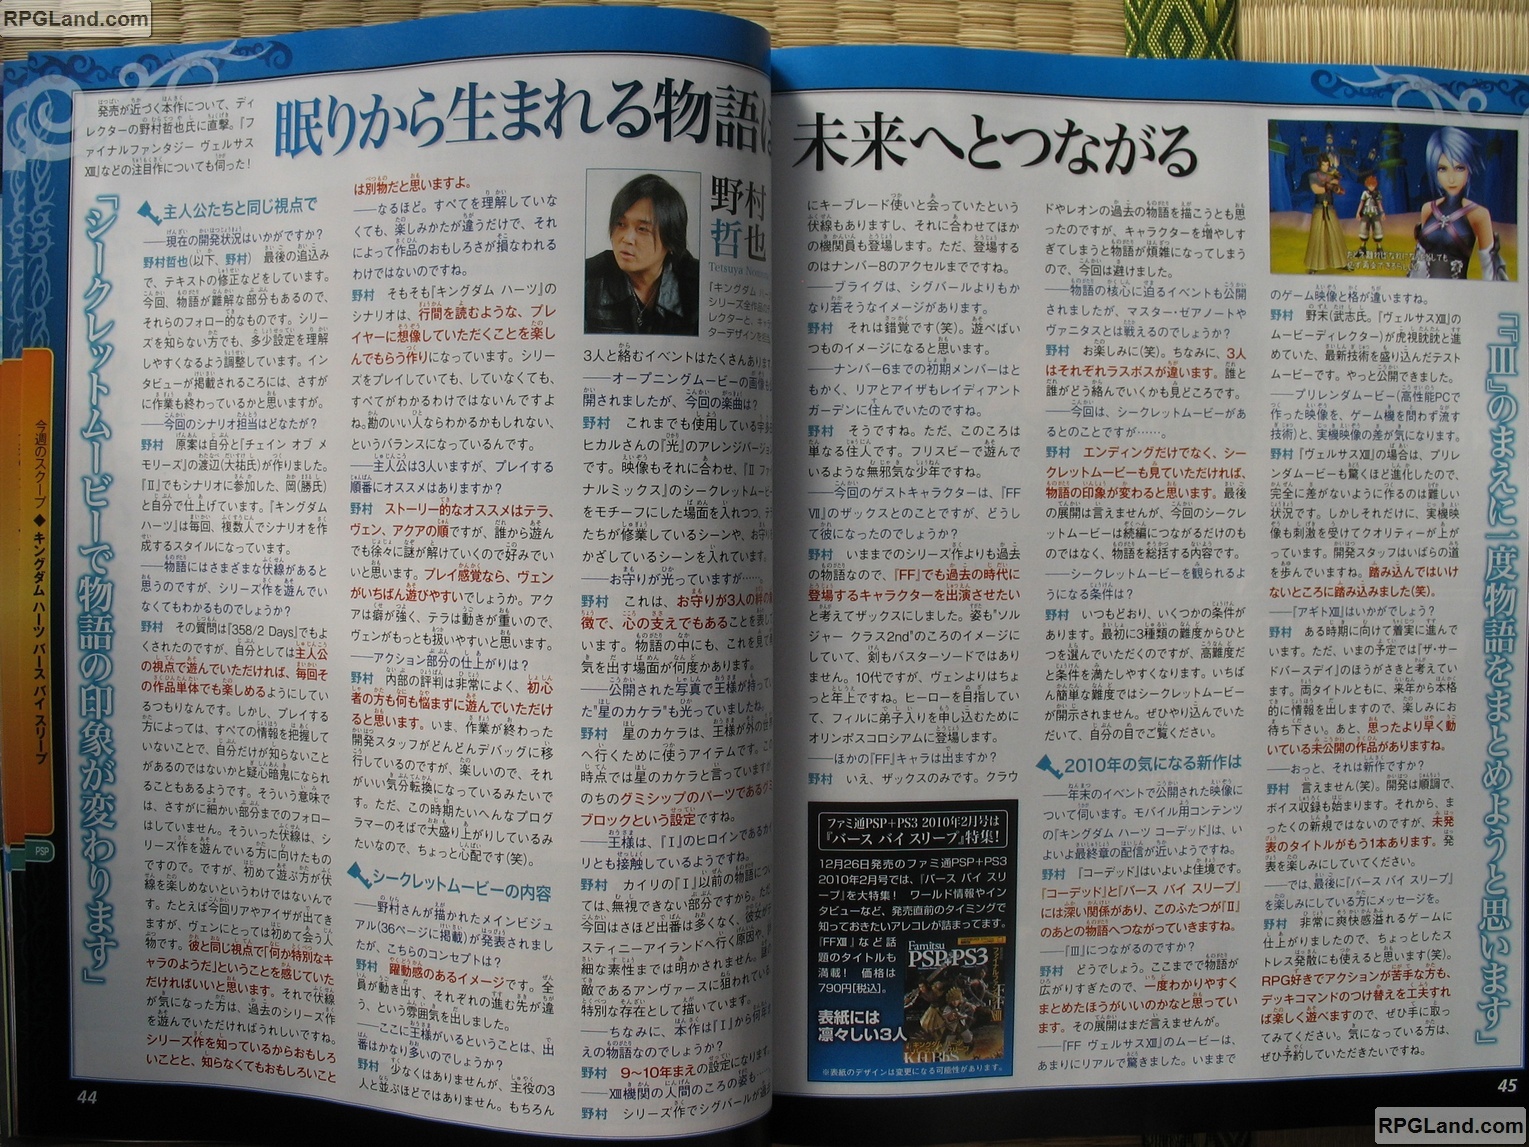 RPGLand.com
発売が近づく本作について、ディ
レクターの野村哲也氏に直撃。『フ
ァイナルファンタジー ヴェルサス
XIII』などの注目作についても伺った!
眠りから生まれる物語は
未来へとつながる
「シークレットムービーで物語の印象が変わります」
主人公たちと同じ視点で
——現在の開発状況はいかがですか?
野村哲也(以下、野村) 最後の追込み
で、テキストの修正などをしています。
今回、物語が難解な部分もあるので、
それらのフォロー的なものです。シリー
ズを知らない方でも、多少設定を理解
しやすくなるよう調整しています。イン
タビューが掲載されるころには、さすが
に作業も終わっているかと思いますが。
——今回のシナリオ担当はどなたが?
野村 原案は自分と『チェイン オブ メ
モリーズ』の渡辺(大祐氏)が作りました。
『II』でもシナリオに参加した、岡(勝氏)
と自分で仕上げています。『キングダム
ハーツ』は毎回、複数人でシナリオを作
成するスタイルになっています。
——物語にはさまざまな伏線があると
思うのですが、シリーズ作を遊んでい
なくてもわかるものでしょうか?
野村 その質問は『358/2 Days』でもよ
くされたのですが、自分としては主人公
の視点で遊んでいただければ、毎回そ
の作品単体でも楽しめるようにしてい
るつもりなんです。しかし、プレイする
方によっては、すべての情報を把握して
いないことで、自分だけが知らないこと
があるのではないかと疑心暗鬼になられ
ることもあるようです。そういう意味で
は、さすがに細かい部分までのフォロー
はしていません。そういった伏線は、シ
リーズ作を遊んでいる方に向けたもの
ですので。ですが、初めて遊ぶ方が伏
線を楽しめないというわけではないんで
す。たとえば今回リアやアイザが出てき
ますが、ヴェンにとっては初めて会う人
物です。彼と同じ視点で「何か特別なキ
ャラのようだ」ということを感じていた
だければいいと思います。それで伏線
が気になった方は、過去のシリーズ作
を遊んでいただければうれしいですね。
シリーズ作を知っているからおもしろ
いことと、知らなくてもおもしろいこと
は別物だと思いますよ。
——なるほど。すべてを理解していな
くても、楽しみかたが違うだけで、それ
によって作品のおもしろさが損なわれる
わけではないのですね。
野村 そもそも『キングダム ハーツ』の
シナリオは、行間を読むような、プレ
イヤーに想像していただくことを楽し
んでもらう作りになっています。シリー
ズをプレイしていても、していなくても、
すべてがわかるわけではないんですよ
ね。勘のいい人ならわかるかもしれない、
というバランスになっているんです。
——主人公は3人いますが、プレイする
順番にオススメはありますか?
野村 ストーリー的なオススメはテラ、
ヴェン、アクアの順ですが、誰から遊ん
でも徐々に謎が解けていくので好みでい
いと思います。プレイ感覚なら、ヴェン
がいちばん遊びやすいでしょうか。アク
アは癖が強く、テラは動きが重いので、
ヴェンがもっとも扱いやすいと思います。
——アクション部分の仕上がりは?
野村 内部の評判は非常によく、初心
者の方も何も悩まずに遊んでいただけ
ると思います。いま、作業が終わった
開発スタッフがどんどんデバッグに移
行しているのですが、楽しいので、それ
がいい気分転換になっているみたいで
す。ただ、この時期たいへんなプログ
ラマーのそばで大盛り上がりしているみ
たいなので、ちょっと心配です(笑)。
シークレットムービーの内容
——野村さんが描かれたメインビジュ
アル(36ページに掲載)が発表されまし
たが、こちらのコンセプトは?
野村 躍動感のあるイメージです。全
員が動き出す、それぞれの進む先が違
う、という雰囲気を出しました。
——ここに王様がいるということは、出
番はかなり多いのでしょうか?
野村 少なくはありませんが、主役の3
人と並ぶほどではありません。もちろん
野村
哲也
Tetsuya
『キングダム
シリーズ全作品の
レクターと、キャ
ターデザインを
3人と絡むイベントはたくさんあります
——オープニングムービーの画像も
開されましたが、今回の楽曲は?
野村 これまでも使用している宇多
ヒカルさんの『光』のアレンジバージョン
です。映像もそれに合わせ、『II ファ
ナルミックス』のシークレットムービー
をモチーフにした場面を入れつつ、テ
たちが修業しているシーンや、お守り
かざしているシーンを入れています。
——お守りが光っていますが……。
野村 これは、お守りが3人の絆の
徴で、心の支えでもあることを表し
います。物語の中にも、これを見て
気を出す場面が何度かあります。
——公開された写真で王様が持って
た"星のカケラ"も光っていましたね。
野村 星のカケラは、王様が外の世
へ行くために使うアイテムです。この
時点では星のカケラと言っていますが、
のちのグミシップのパーツであるグミ
ブロックという設定ですね。
——王様は、『I』のヒロインであるカイ
リとも接触しているようですね。
野村 カイリの『I』以前の物語につ
ては、無視できない部分ですから。ただ
今回はさほど出番も多くなく、彼女が
スティニーアイランドへ行く原因や、
細な素性までは明かされません。
敵であるアンヴァースに狙われている
特別な存在として描いています。
——ちなみに、本作は『I』から何年
えの物語なのでしょうか?
野村 9〜10年まえの設定になります
——XIII機関の人間のころの姿も……。
野村 シリーズ作でシグバールが過
にキーブレード使いと会っていたという
伏線もありますし、それに合わせてほか
の機関員も登場します。ただ、登場する
のはナンバー8のアクセルまでですね。
——ブライグは、シグバールよりもか
なり若そうなイメージがあります。
野村 それは錯覚です(笑)。遊べばい
つものイメージになると思います。
——ナンバー6までの初期メンバーはと
もかく、リアとアイザもレイディアント
ガーデンに住んでいたのですね。
野村 そうですね。ただ、このころは
単なる住人です。フリスビーで遊んで
いるような無邪気な少年ですね。
——今回のゲストキャラクターは、『FF
VII』のザックスとのことですが、どうし
て彼になったのでしょうか?
野村 いままでのシリーズ作よりも過去
の物語なので、『FF』でも過去の時代に
登場するキャラクターを出演させたい
と考えてザックスにしました。姿も"ソル
ジャー クラス2nd"のころのイメージに
していて、剣もバスターソードではあり
ません。10代ですが、ヴェンよりはちょ
っと年上ですね。ヒーローを目指してい
て、フィルに弟子入りを申し込むために
オリンポスコロシアムに登場します。
——ほかの『FF』キャラは出ますか?
野村 いえ、ザックスのみです。クラウ
ファミ通PSP+PS3 2010年2月号は
『バース バイ スリープ』特集!
12月26日発売のファミ通PSP+PS3
2010年2月号では、『バース バイ スリ
ープ』を大特集! ワールド情報やイン
タビューなど、発売直前のタイミングで
知っておきたいアレコレが詰まってます。
『FFXIII』など話
題のタイトルも
満載! 価格は
790円[税込]。
表紙には
凛々しい3人
Famitsu
PSP+PS3
※表紙のデザインは変更になる可能性があります。
ドやレオンの過去の物語を描こうとも思
ったのですが、キャラクターを増やしす
ぎてしまうと物語が煩雑になってしまう
ので、今回は避けました。
——物語の核心に迫るイベントも公開
されましたが、マスター・ゼアノートや
ヴァニタスとは戦えるのでしょうか?
野村 お楽しみに(笑)。ちなみに、3人
はそれぞれラスボスが違います。誰と
誰がどう絡んでいくかも見どころです。
——今回は、シークレットムービーがあ
るとのことですが……。
野村 エンディングだけでなく、シー
クレットムービーも見ていただければ、
物語の印象が変わると思います。最後
の展開は言えませんが、今回のシークレ
ットムービーは続編につながるだけのも
のではなく、物語を総括する内容です。
——シークレットムービーを観られるよ
うになる条件は?
野村 いつもどおり、いくつかの条件が
あります。最初に3種類の難度からひと
つを選んでいただくのですが、高難度だ
と条件を満たしやすくなります。いちば
ん簡単な難度ではシークレットムービー
が開示されません。ぜひやり込んでいた
だいて、自分の目でご覧ください。
2010年の気になる新作は
——年末のイベントで公開された映像に
ついて伺います。モバイル用コンテンツ
の『キングダム ハーツ コーデッド』は、い
よいよ最終章の配信が近いようですね。
野村 『コーデッド』はいよいよ佳境です。
『コーデッド』と『バース バイ スリープ』
には深い関係があり、このふたつが『II』
のあとの物語へつながっていきますね。
——『III』につながるのですか?
野村 どうでしょう。ここまでで物語が
広がりすぎたので、一度わかりやすく
まとめたほうがいいのかなと思ってい
ます。その展開はまだ言えませんが。
——『FF ヴェルサスXIII』のムービーは、
あまりにリアルで驚きました。いままで
のゲーム映像と格が違いますね。
野村 野末(武志氏。『ヴェルサスXIII』の
ムービーディレクター)が虎視眈眈と進
めていた、最新技術を盛り込んだテスト
ムービーです。やっと公開できました。
——プリレンダムービー(高性能PCで
作った映像を、ゲーム機を問わず流す
技術)と、実機映像の差が気になります。
野村 『ヴェルサスXIII』の場合は、プリレ
ンダムービーも驚くほど進化したので、
完全に差がないように作るのは難しい
状況です。しかしそれだけに、実機映
像も刺激を受けてクオリティーが上が
っています。開発スタッフはいばらの道
を歩んでいますね。踏み込んではいけ
ないところに踏み込みました(笑)。
——『アギトXIII』はいかがでしょう?
野村 ある時期に向けて着実に進んで
います。ただ、いまの予定では『ザ・サ
ードバースデイ』のほうがさきと考えてい
ます。両タイトルともに、来年から本格
的に情報を出しますので、楽しみにお
待ち下さい。あと、思ったより早く動
いている未公開の作品がありますね。
——おっと、それは新作ですか?
野村 言えません(笑)。開発は順調で、
ボイス収録も始まります。それから、ま
ったくの新規ではないのですが、未発
表のタイトルがもう1本あります。発
表を楽しみにしていてください。
——では、最後に『バース バイ スリープ』
を楽しみにしている方にメッセージを。
野村 非常に爽快感溢れるゲームに
仕上がりましたので、ちょっとしたス
トレス発散にも使えると思います(笑)。
RPG好きでアクションが苦手な方も、
デッキコマンドのつけ替えを工夫すれ
ば楽しく遊べますので、ぜひ手に取っ
てみてください。気になっている方は、
ぜひ予約していただきたいですね。
「『III』のまえに一度物語をまとめようと思います」
今週のスクープ◆キングダム ハーツ バース バイ スリープ
PSP
44
45
RPGLand.com